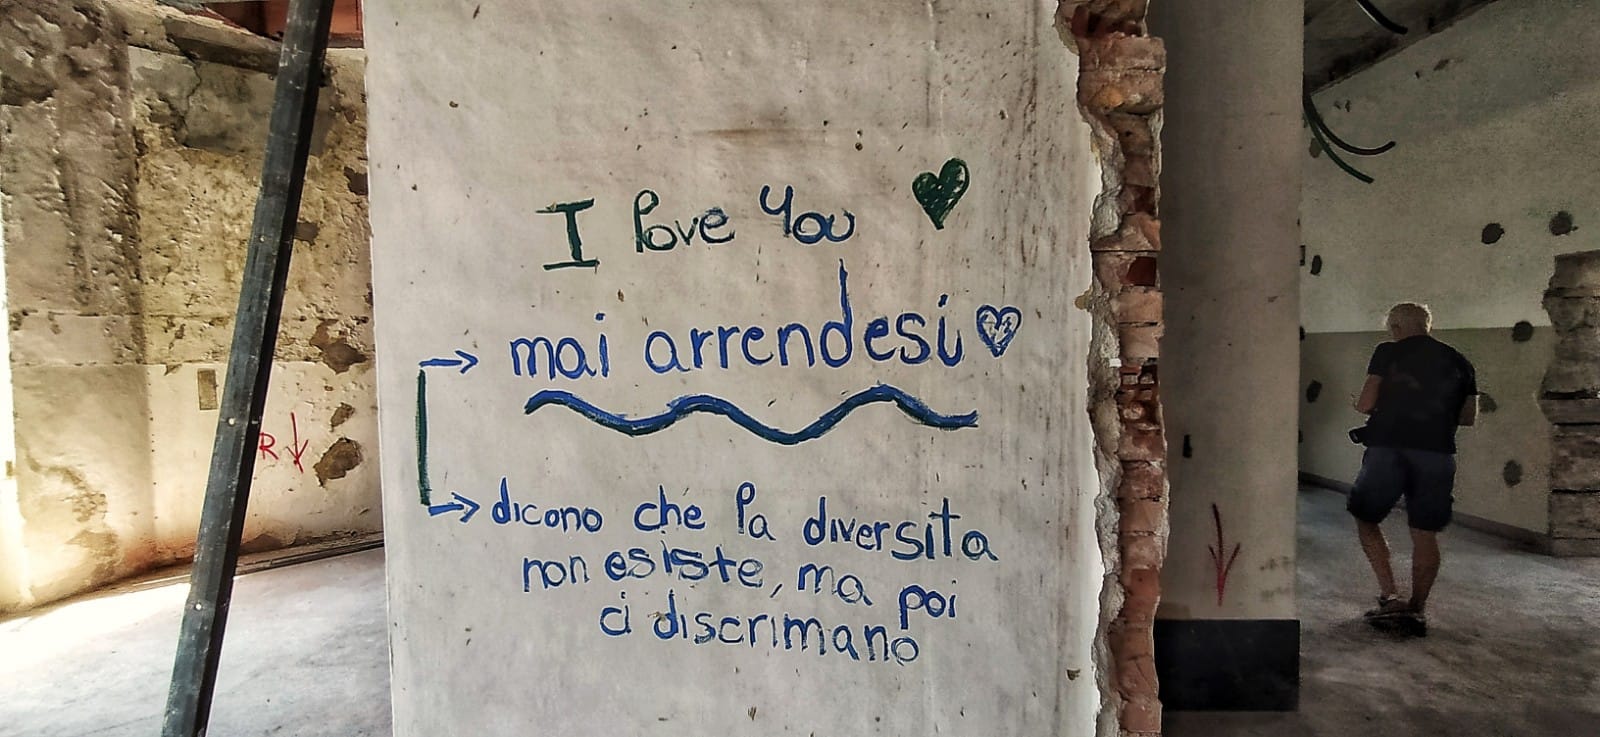 I love You
mai arrendesi
R
dicono che la diversita
non esiste, ma poi
ci discrimano